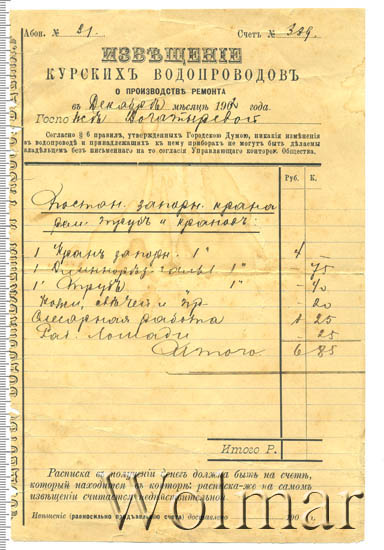 Абон. № 21. Счетъ № 329.
ИЗВѢЩЕНІЕ
КУРСКИХЪ ВОДОПРОВОДОВЪ
О ПРОИЗВОДСТВѢ РЕМОНТА
въ Декабрѣ мѣсяцѣ 190 года.
Госпо жѣ Богатыревой
Согласно § 6 правилъ, утвержденныхъ Городскою Думою, никакія измѣненія
въ водопроводѣ и принадлежащихъ къ нему приборахъ не могутъ быть дѣлаемы
владѣльцемъ безъ письменнаго на то согласія Управляющаго конторою Общества.
Руб. К.
запорн. крана
рем. трубъ и крановъ:
1 Кранъ запорн. 1" 4 —
1 1" — 75
1' Трубъ " — 40
Кожи, свѣчей и пр. — 20
Слесарная работа 1 25
Раб. лошади — 25
Итого 6 85
Итого Р.
Расписка въ полученіи денегъ должна быть на счетѣ,
который находится въ конторѣ: расписка-же на самомъ
извѣщеніи считается недѣйствительной.
Извѣщеніе (равносильно предъявленію счета) доставлено 190 г.
Wolmar